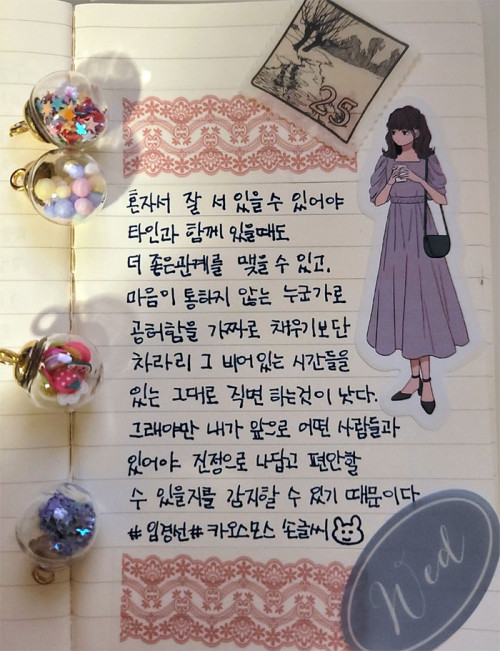 25
혼자서 잘 서 있을 수 있어야
타인과 함께 있을때도
더 좋은관계를 맺을 수 있고,
마음이 통하지 않는 누군가로
공허함을 가짜로 채우기보단
차라리 그 비어있는 시간들을
있는 그대로 직면 하는것이 낫다.
그래야만 내가 앞으로 어떤 사람들과
있어야 진정으로 나답고 편안할
수 있을지를 감지할 수 있기 때문이다
#임경선# 카오스모스 손글씨
Wed